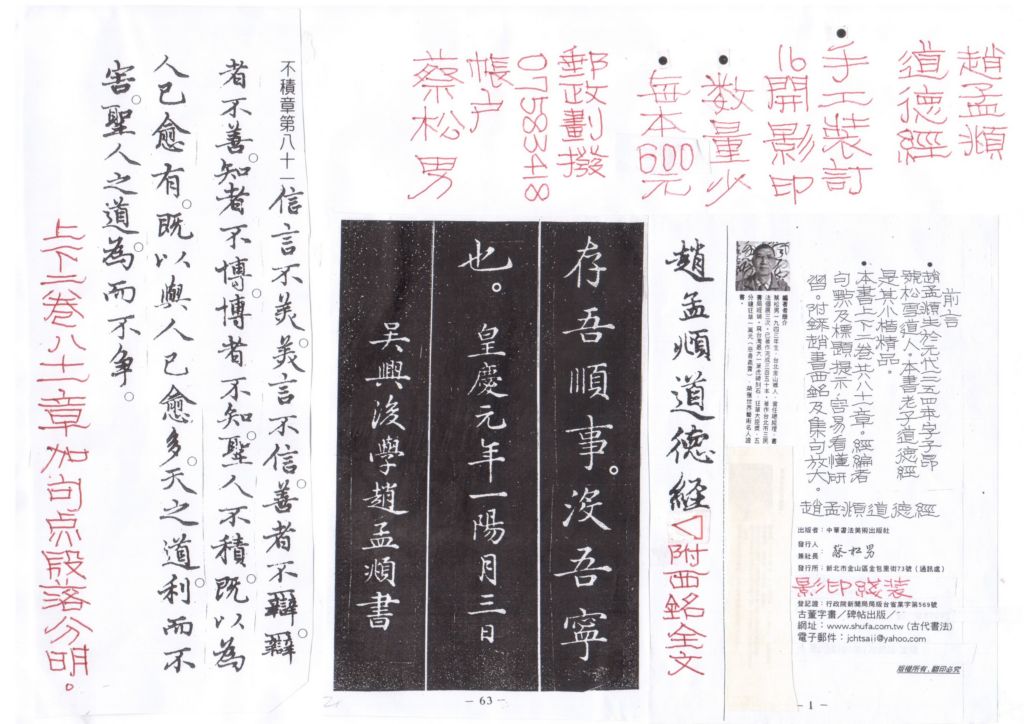 趙孟頫
道德經
手工裝訂
16開影印
数量少
每本600元
郵政劃撥
07583418
帳户
蔡松男
前言
趙孟頫生於元代一二五四年字子昂
號松雪道人。本書老子道德經
是其小楷精品。
本書上下二卷共八十一章。經編者
句點及標題提示。容易看懂研
習。附錄趙書西銘及集句放大。
趙孟頫道德經
出版者：中華書法美術出版社
發行人
兼社長：蔡松男
發行所：新北市金山區金包里街73號（通訊處）
影印綫裝
登記證：行政院新聞局局版台省業字第569號
古董字畫／碑帖出版／
網址：www.shufa.com.tw (古代書法)
電子郵件：jchtsaii@yahoo.com
版權所有．翻印必究
－1－
編著者簡介
趙孟頫道德經
附西銘全文
存吾順事。沒吾寧
也。皇慶元年一陽月三日
吳興後學趙孟頫書
－63－
不積章第八十一
信言不美。美言不信。善者不辯。辯
者不善。知者不博。博者不知。聖人不積。既以為
人已愈有。既以與人已愈多。天之道。利而不
害。聖人之道。為而不爭。
上下二卷八十一章加句点段落分明。